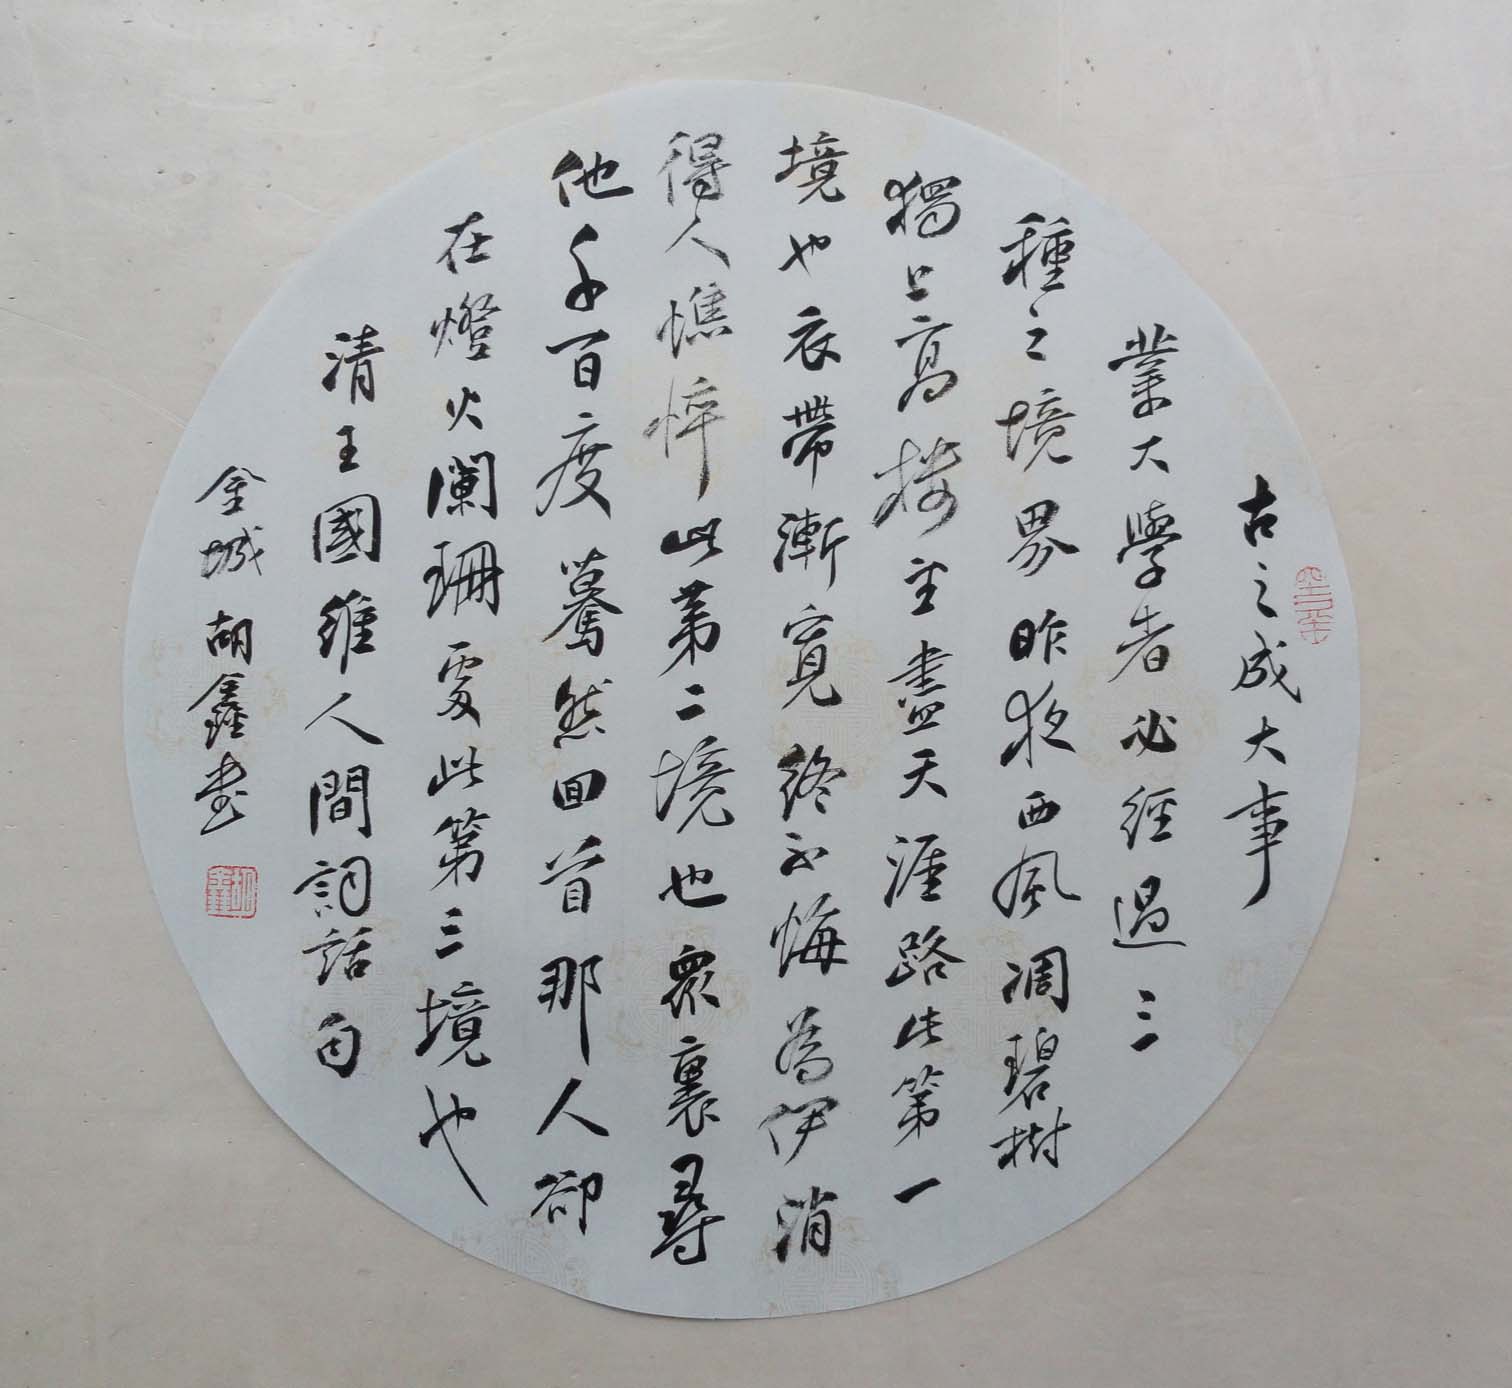 古之成大事
業大學者必經過三
種之境界昨夜西風凋碧樹
獨上高樓望盡天涯路此第一
境也衣帶漸寬終不悔為伊消
得人憔悴此第二境也眾裏尋
他千百度驀然回首那人卻
在燈火闌珊處此第三境也
清王國維人間詞話句
金城胡鑫書
胡鑫